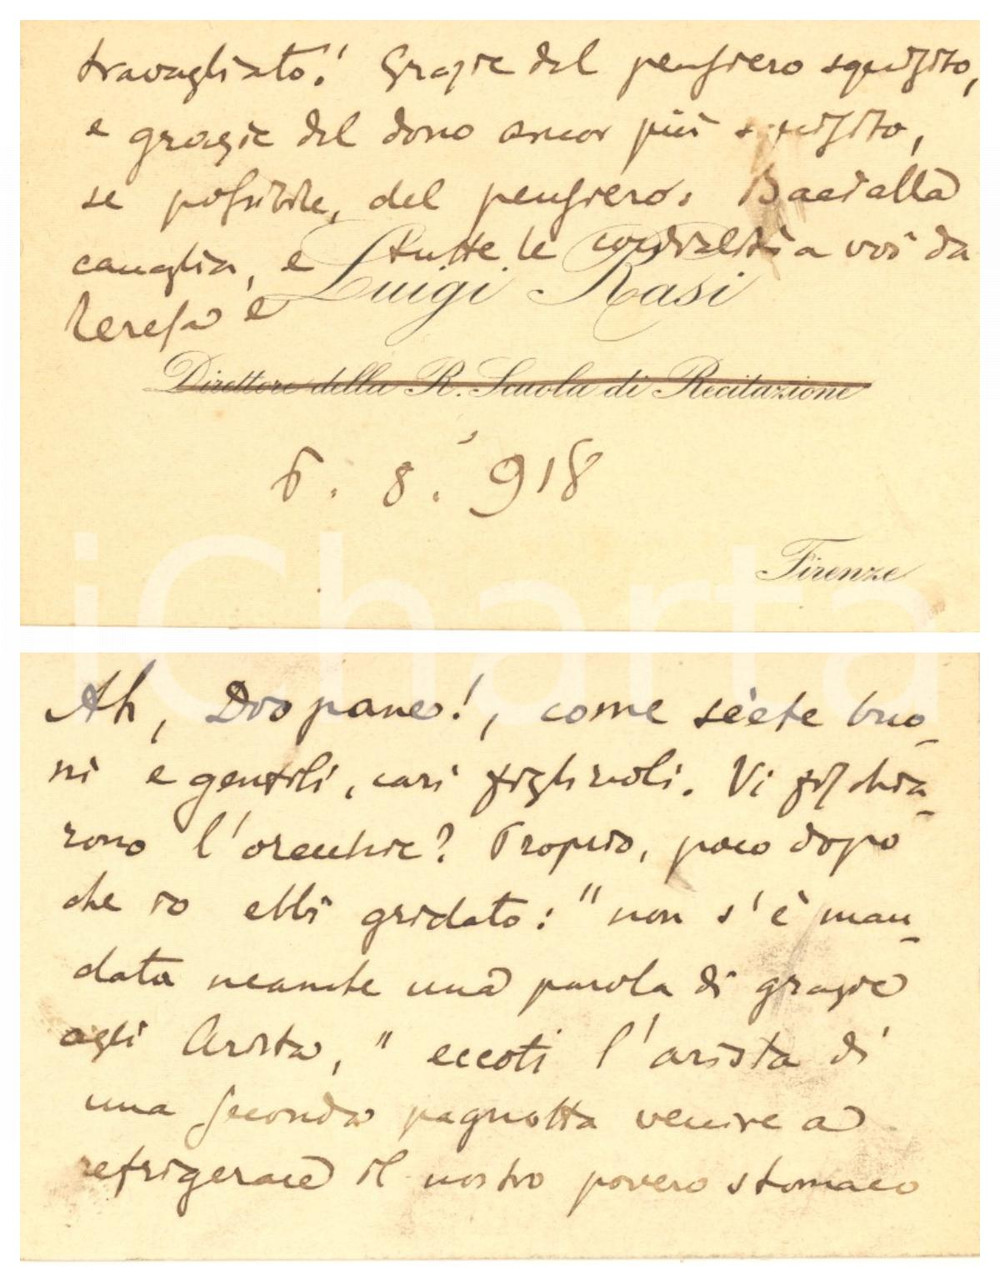 travagliato! Grazie del pensiero squisito,
e grazie del dono ancor più squisito,
se possibile, del pensiero. Baci alla
caniglia, e tutte le cordialità a voi da
Teresa e
Luigi Rasi
Direttore della R. Scuola di Recitazione
6. 8. 918
Firenze
Ah, Dio pane!, come siete buo-
ni e gentili, cari figliuoli. Vi fischia-
rono l'orecchie? Proprio, poco dopo
che io ebbi gridato: "non s'è man-
data neanche una parola di grazie
agli Arista," eccoti l'arista di
una seconda pagnotta venire a
refrigerare il nostro povero stomaco
iCharta